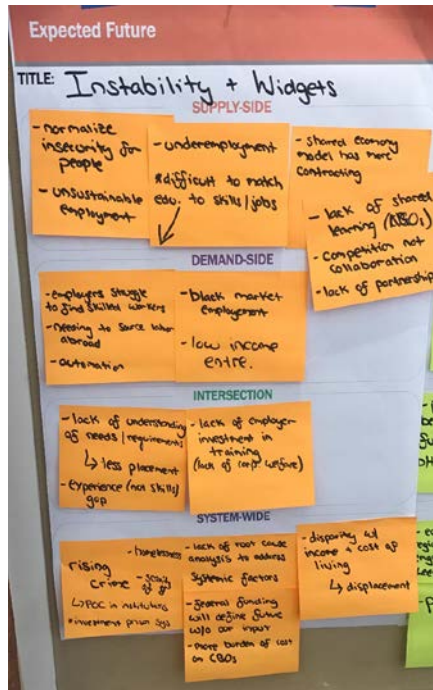 Expected Future
TITLE: Instability + Widgets
SUPPLY-SIDE
- normalize
insecurity for
people
- unsustainable
employment
- underemployment
*difficult to match
edu. to skills/jobs
- shared economy
model has more
contracting
- lack of shared
learning
- competition not
collaboration
- lack of partnership
DEMAND-SIDE
- employers struggle
to find skilled workers
- needing to source labor
abroad
- automation
- black market
employment
- low income
entre.
INTERSECTION
- lack of understanding
of needs/requirements
↳ less placement
- experience (not skills)
gap
- lack of employer
investment in
training
(lack of corp. welfare)
SYSTEM-WIDE
- homelessness
rising
crime
↳ POC in institutions
* investment prison sys
- lack of root cause
analysis to address
systemic factors
- federal funding
will define future
w/o our input
- more burden of cost
on CBOs
- disparity w/
income + cost of
living
↳ displacement